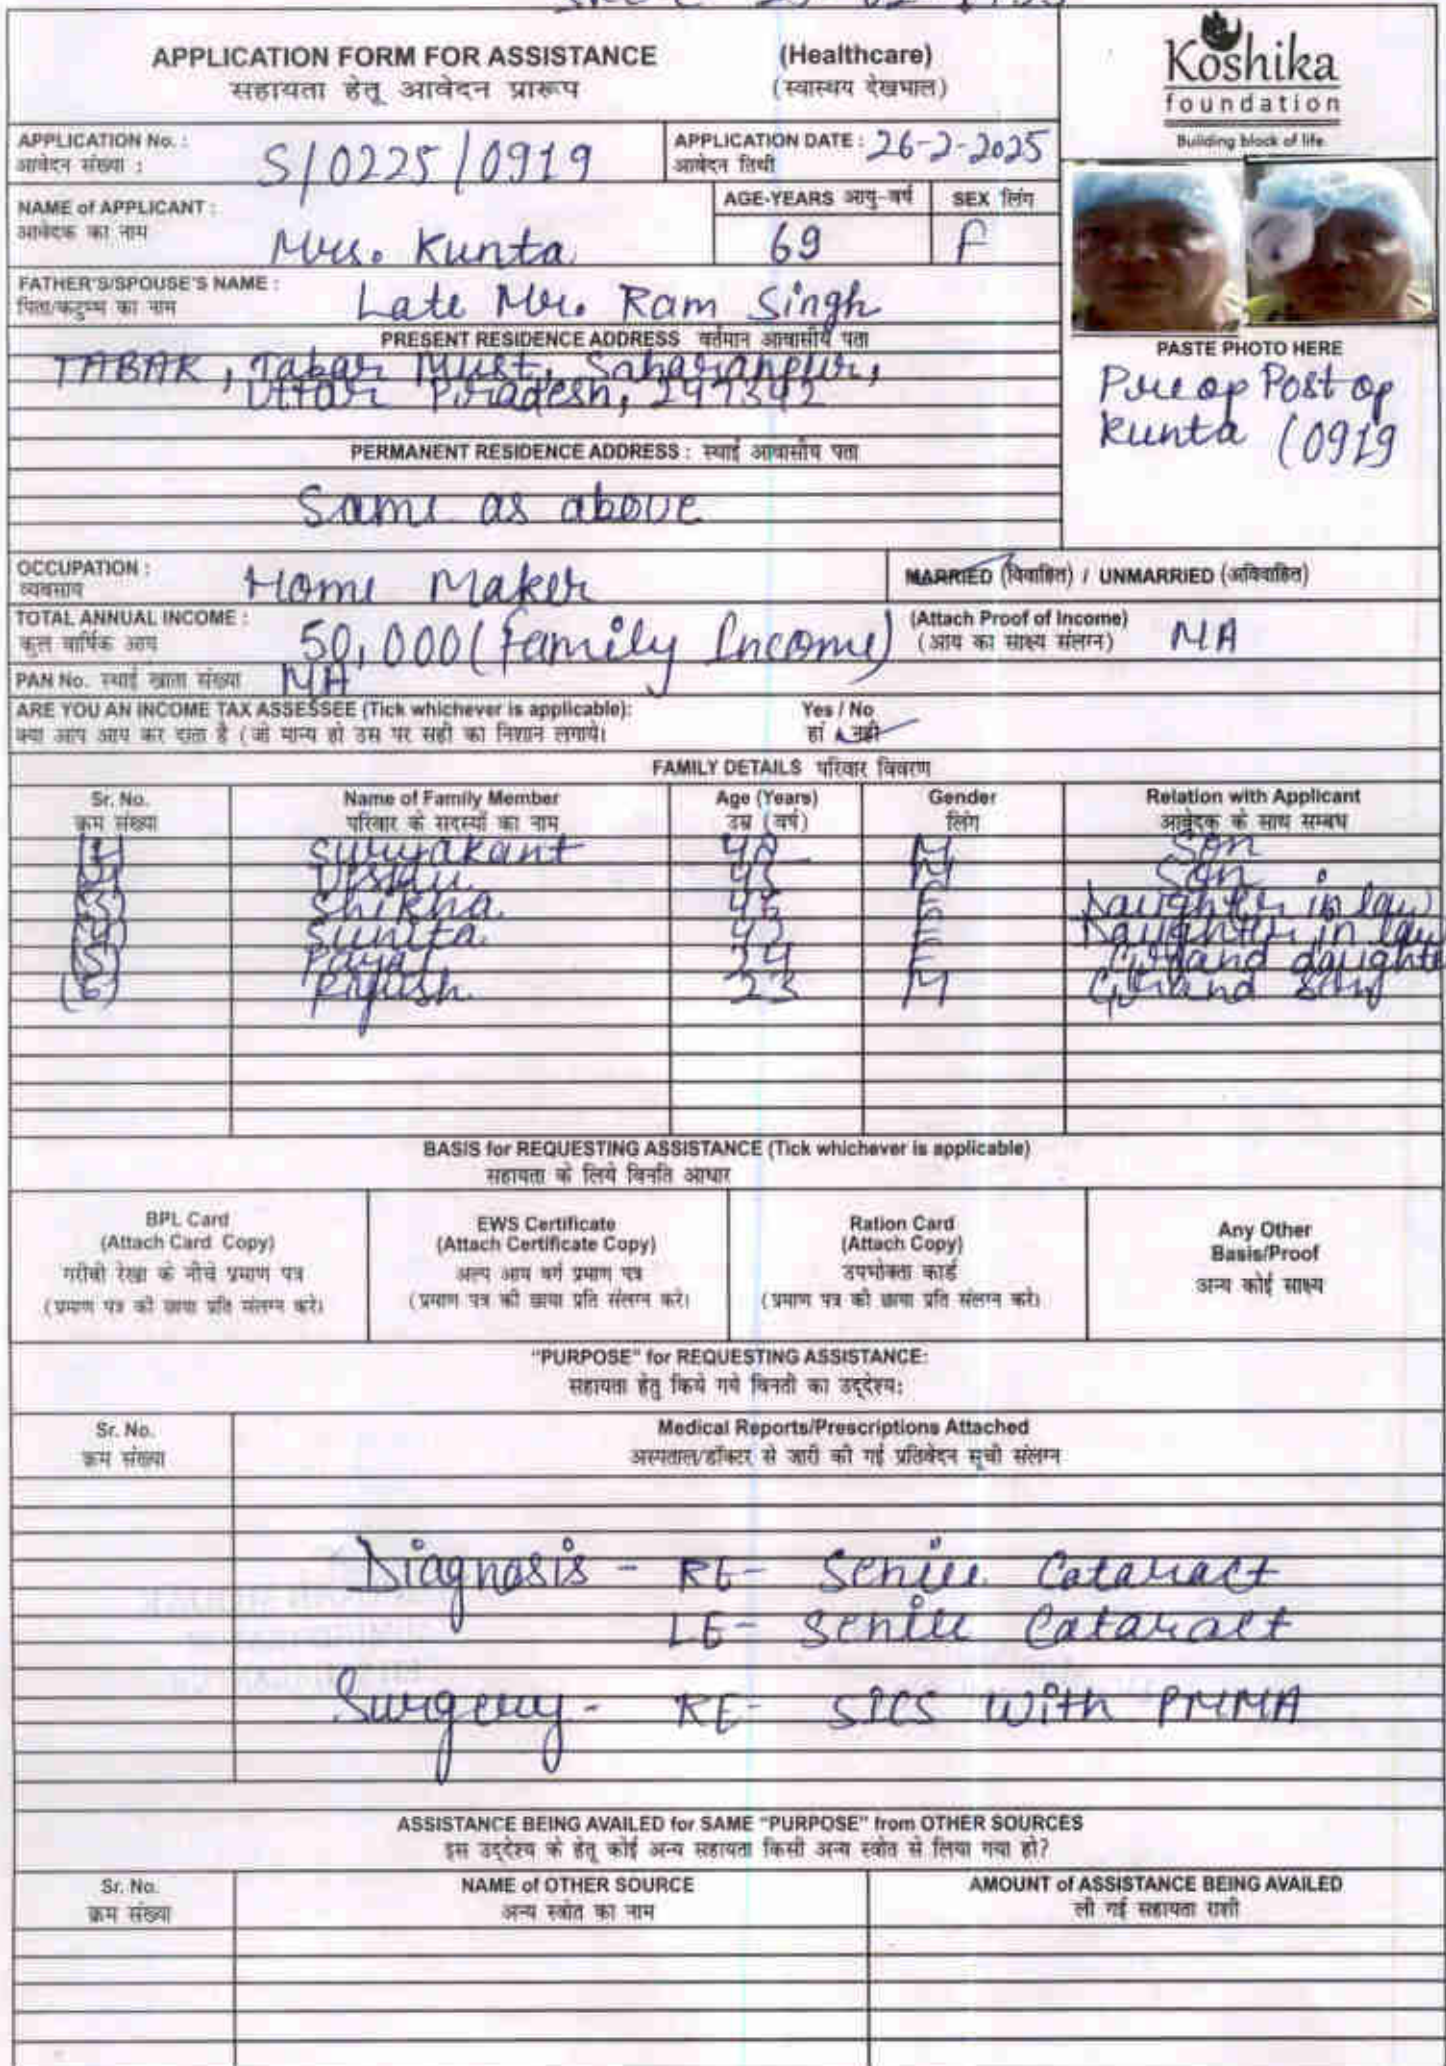 APPLICATION FORM FOR ASSISTANCE (Healthcare)
सहायता हेतू आवेदन प्रारूप (स्वास्थय देखभाल)
Koshika
foundation
Building block of life
APPLICATION No. : S/0225/0919 APPLICATION DATE : 26-2-2025
आवेदन संख्या : आवेदन तिथी
NAME of APPLICANT : Mrs. Kunta AGE-YEARS आयु-वर्ष 69 SEX लिंग F
आवेदक का नाम
FATHER'S/SPOUSE'S NAME : Late Mr. Ram Singh
पिता/कटुम्ब का नाम
PRESENT RESIDENCE ADDRESS वर्तमान आवासीय पता
TABAR, Tabar Must, Saharanpur,
Uttar Pradesh, 247342
PASTE PHOTO HERE
Pre op Post op
Kunta (0919
PERMANENT RESIDENCE ADDRESS : स्थाई आवासीय पता
Same as above
OCCUPATION : Home Maker MARRIED (विवाहित) / UNMARRIED (अविवाहित)
व्यवसाय
TOTAL ANNUAL INCOME : 50,000 (Family Income) (Attach Proof of Income) NA
कुल वार्षिक आय (आय का साक्ष्य संलग्न)
PAN No. स्थाई खाता संख्या NA
ARE YOU AN INCOME TAX ASSESSEE (Tick whichever is applicable): Yes / No
क्या आप आय कर दाता है (जो मान्य हो उस पर सही का निशान लगाये। हां / नही
FAMILY DETAILS परिवार विवरण
Sr. No. Name of Family Member Age (Years) Gender Relation with Applicant
क्रम संख्या परिवार के सदस्यों का नाम उम्र (वर्ष) लिंग आवेदक के साथ सम्बंध
Suryakant M Son
M Son
(3) Shikha F Daughter in law
(4) Sunita F Daughter in law
(5) Payal 24 F Grand daughte
(6) Piyush 23 M Grand Son
BASIS for REQUESTING ASSISTANCE (Tick whichever is applicable)
सहायता के लिये विनति आधार
BPL Card
(Attach Card Copy)
गरीबी रेखा के नीचे प्रमाण पत्र
(प्रमाण पत्र की छाया प्रति संलग्न करे)
EWS Certificate
(Attach Certificate Copy)
अल्प आय वर्ग प्रमाण पत्र
(प्रमाण पत्र की छाया प्रति संलग्न करे)
Ration Card
(Attach Copy)
उपभोक्ता कार्ड
(प्रमाण पत्र की छाया प्रति संलग्न करे)
Any Other
Basis/Proof
अन्य कोई साक्ष्य
"PURPOSE" for REQUESTING ASSISTANCE:
सहायता हेतु किये गये विनती का उद्देश्य:
Sr. No. Medical Reports/Prescriptions Attached
क्रम संख्या अस्पताल/डॉक्टर से जारी की गई प्रतिवेदन सूची संलग्न
Diagnosis - RE- Senile Cataract
LE- Senile Cataract
Surgery - RE- SICS With PMMA
ASSISTANCE BEING AVAILED for SAME "PURPOSE" from OTHER SOURCES
इस उद्देश्य के हेतू कोई अन्य सहायता किसी अन्य स्त्रोत से लिया गया हो?
Sr. No. NAME of OTHER SOURCE AMOUNT of ASSISTANCE BEING AVAILED
क्रम संख्या अन्य स्त्रोत का नाम ली गई सहायता राशी